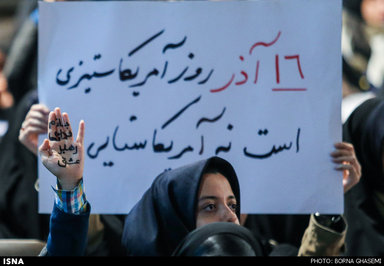 ۱۶ آذر
روز آمریکا ستیزی
است نه آمریکا ستایی
ISNA
PHOTO: BORNA GHASEMI